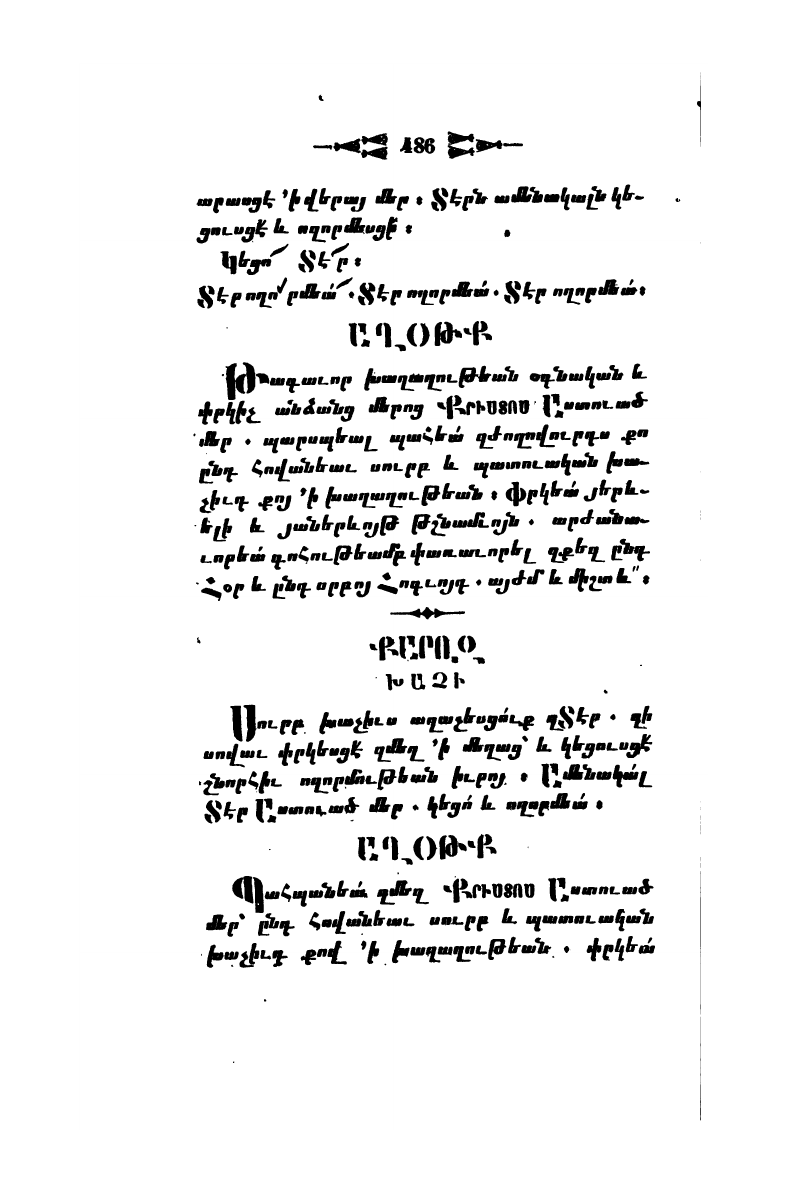 486
արասցէ ՚ի վերայ մեր ։ Տէրն ամենակալն կե-
ցուսցէ և ողորմեսցի ։
Կեցո՜ Տէ՜ր ։
Տէր ողո՛րմեա՜. Տէր ողորմեա՛. Տէր ողորմեա՛ ։
ԱՂՕԹՔ
Թագաւոր խաղաղութեան օգնական և
փրկիչ անձանց մերոց ՔՐԻՍՏՈՍ Աստուած
մեր . պարսպեալ պահեա՛ զժողովուրդս քո
ընդ հովանեաւ սուրբ և պատուական խա-
չիւդ քոյ ՚ի խաղաղութեան ։ Փրկեա՛ յերև-
ելի և յաներևոյթ թշնամւոյն . արժանա-
ւորեա՛ գոհութեամբ փառաւորել զքեզ ընդ
Հօր և ընդ սրբոյ Հոգւոյդ . այժմ և միշտ և՟ ։
ՔԱՐՈԶ
ԽԱՉԻ
Սուրբ խաչիւս աղաչեսցո՛ւք զՏէր . զի
սովաւ փրկեսցէ զմեզ ՚ի մեղաց՝ և կեցուսցէ
շնորհիւ ողորմութեան իւրոյ ։ Ամենակա՛լ
Տէր Աստուած մեր . կեցո՛ և ողորմեա՛ ։
ԱՂՕԹՔ
Պահպանեա՛ զմեզ ՔՐԻՍՏՈՍ Աստուած
մեր՝ ընդ հովանեաւ սուրբ և պատուական
խաչիւդ քով ՚ի խաղաղութեան . փրկեա՛